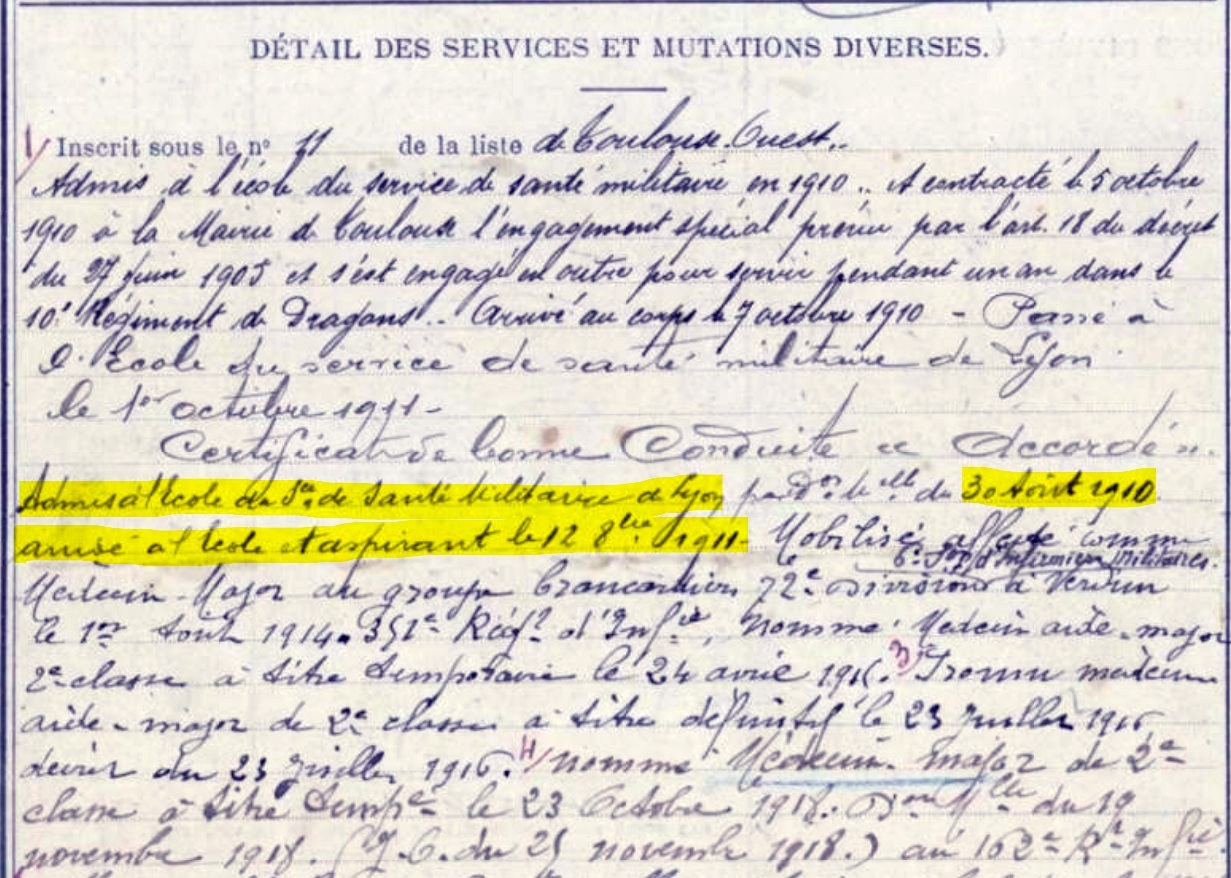 DÉTAIL DES SERVICES ET MUTATIONS DIVERSES.
1/ Inscrit sous le n° 11 de la liste de Toulouse-Ouest..
Admis à l'école du service de santé militaire en 1910.. A contracté le 5 octobre
1910 à la Mairie de Toulouse l'engagement spécial prévu par l'art. 18 du décret
du 27 juin 1905 et s'est engagé en outre pour servir pendant un an dans le
10e Régiment de Dragons.. Arrivé au corps le 7 octobre 1910 - Passé à
l'Ecole du service de santé militaire de Lyon
le 1er octobre 1911-
Certificat de bonne Conduite "Accordé".
Admis à l'Ecole du Sce de Santé Militaire de Lyon par Don Mlle du 30 Août 1910.
arrivé à l'Ecole et aspirant le 12 8bre 1911- Mobilisé affecté comme
6e Son d'Infirmiers Militaires.
Médecin-Major au groupe Brancardiers 72e Division à Verdun
le 1er Août 1914. 351e Régt d'Infie, Nommé Médecin aide-major
2e classe à titre temporaire le 24 avril 1916. 3/ Promu médecin
aide-major de 2e classe à titre définitif le 23 Juillet 1916,
du 23 Juillet 1916. 4/ nommé Médecin-major de 2e
classe à titre tempre le 23 Octobre 1918. Don Mlle du 19
novembre 1918. (J.O. du 25 novembre 1918.) au 162e Rt Infie.